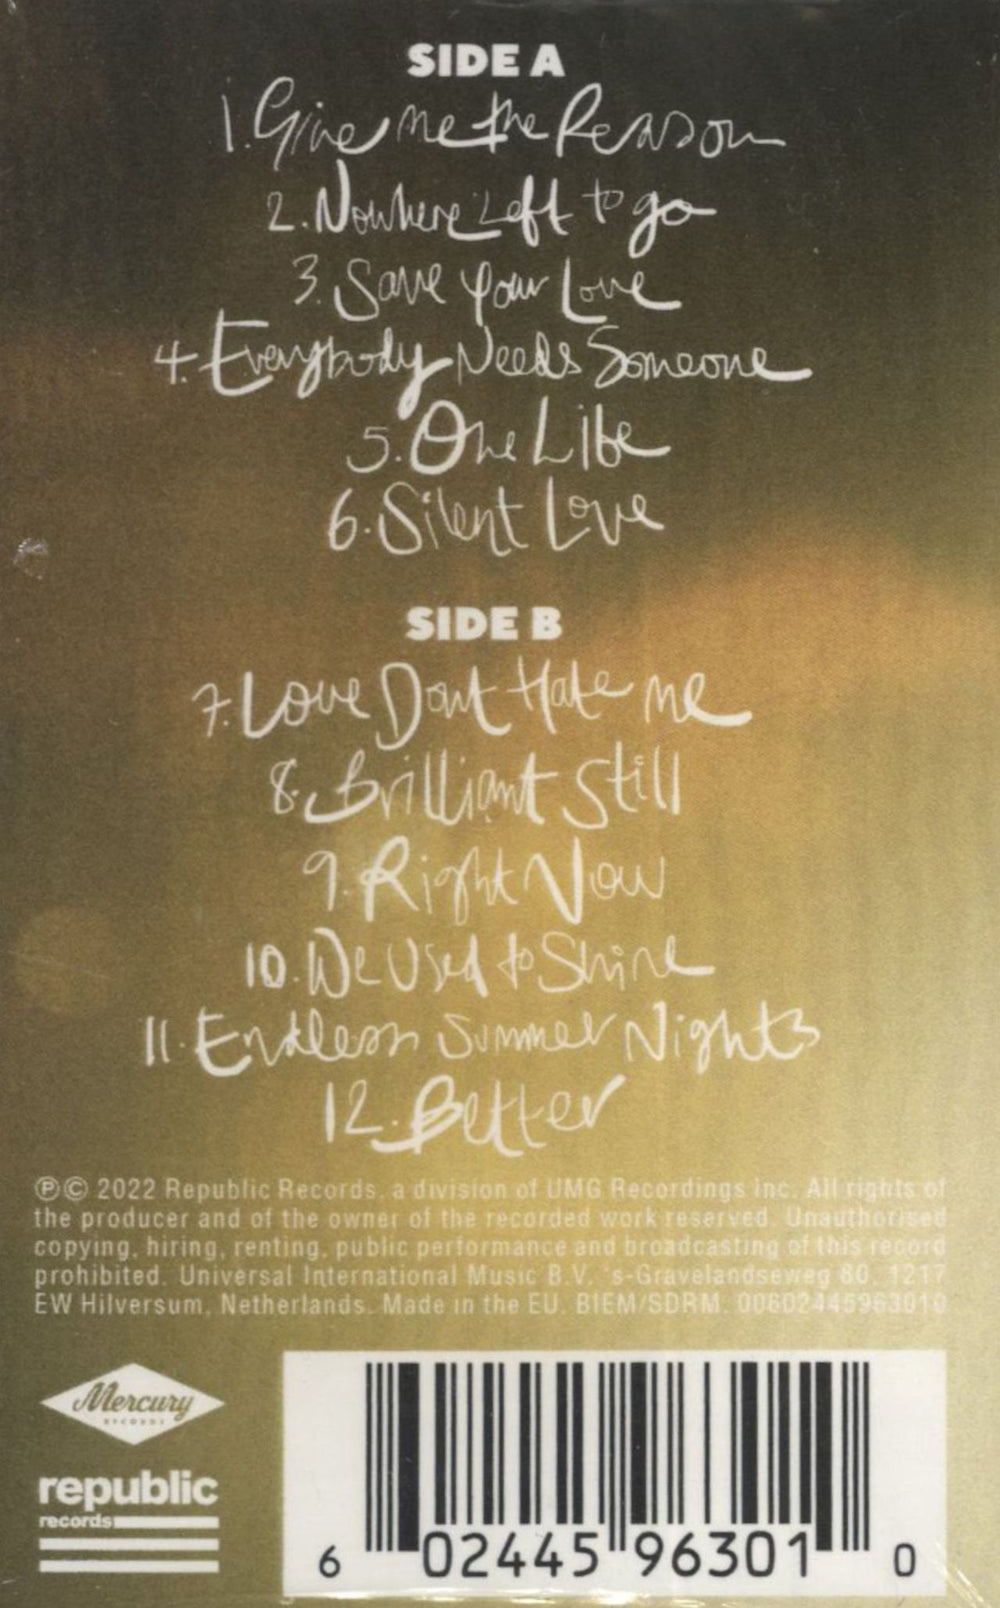 SIDE A
1. Give me the Reason
2. Nowhere Left to go
3. Save your Love
4. Everybody Needs Someone
5. One Life
6. Silent Love
SIDE B
7. Love Dont Hate me
8. Brilliant Still
9. Right Now
10. We Used to Shine
11. Endless Summer Nights
12. Better
℗© 2022 Republic Records, a division of UMG Recordings Inc. All rights of
the producer and of the owner of the recorded work reserved. Unauthorised
copying, hiring, renting, public performance and broadcasting of this record
prohibited. Universal International Music B.V. 's-Gravelandseweg 80, 1217
EW Hilversum, Netherlands. Made in the EU. BIEM/SDRM. 00602445963010
Mercury
RECORDS
republic
records
6 02445 96301 0